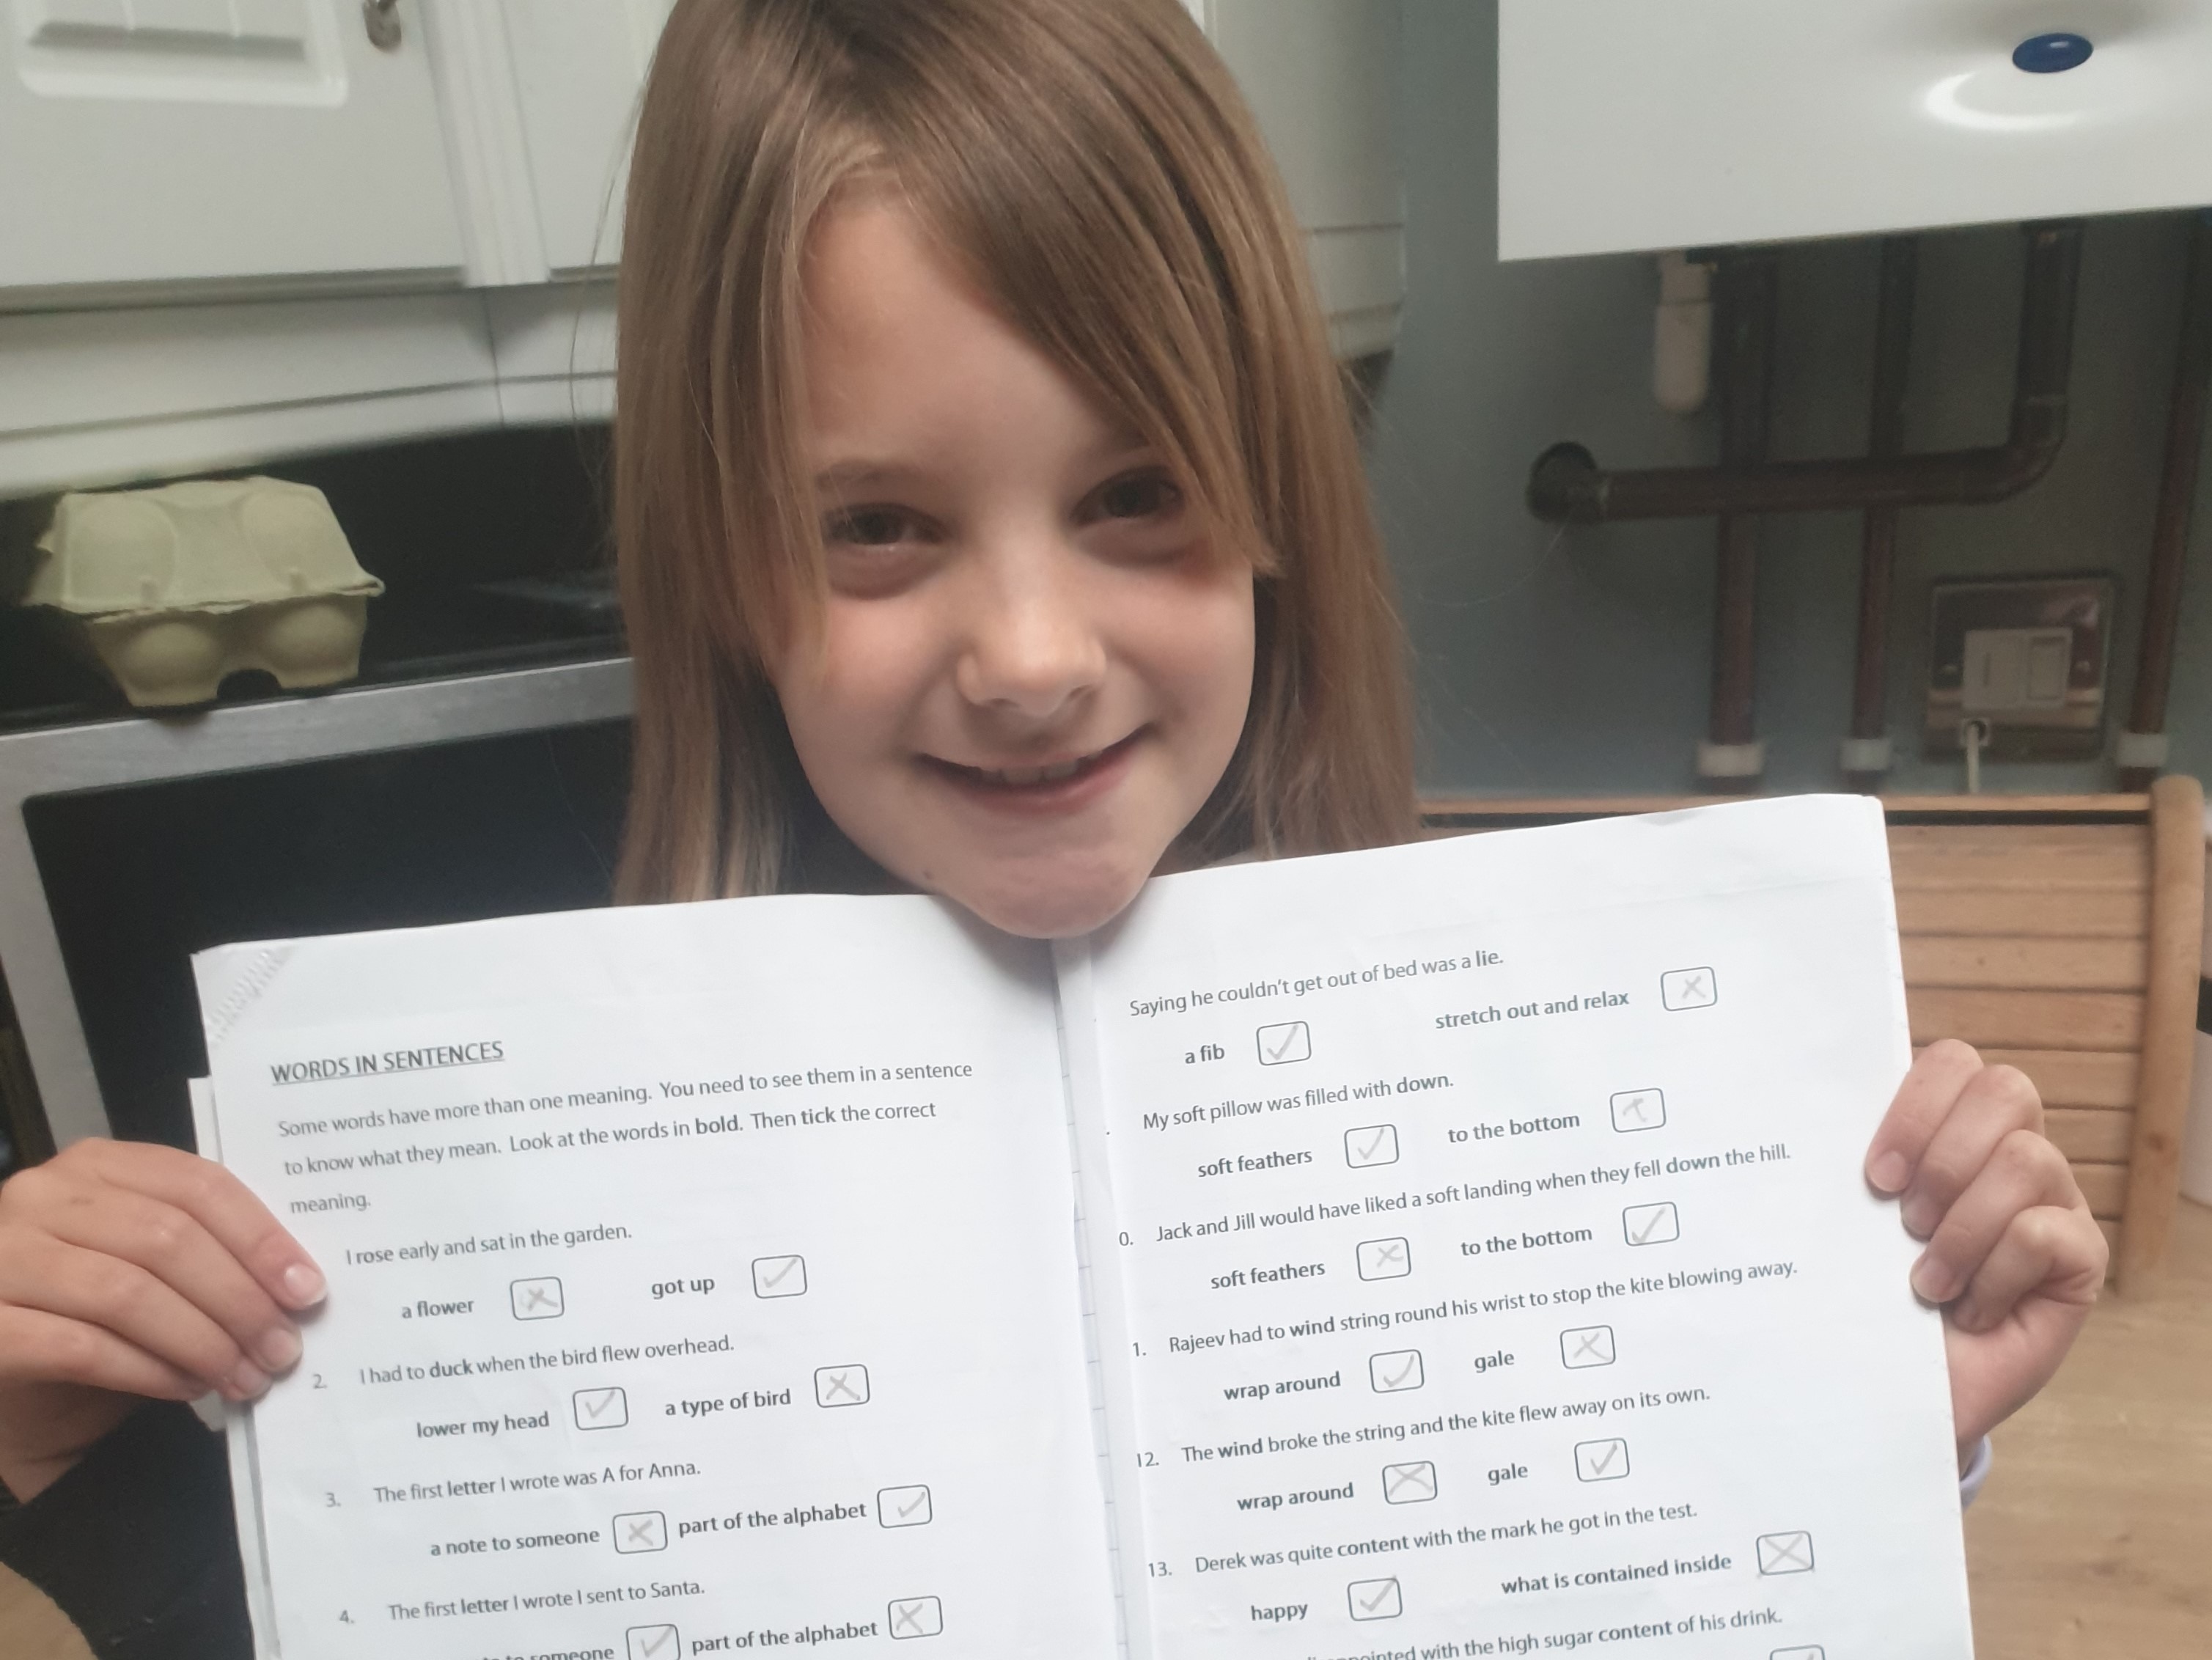 WORDS IN SENTENCES
Some words have more than one meaning. You need to see them in a sentence
to know what they mean. Look at the words in bold. Then tick the correct
meaning.
I rose early and sat in the garden.
a flower got up
2. I had to duck when the bird flew overhead.
lower my head a type of bird
3. The first letter I wrote was A for Anna.
a note to someone part of the alphabet
4. The first letter I wrote I sent to Santa.
someone part of the alphabet
Saying he couldn't get out of bed was a lie.
a fib stretch out and relax
My soft pillow was filled with down.
soft feathers to the bottom
0. Jack and Jill would have liked a soft landing when they fell down the hill.
soft feathers to the bottom
1. Rajeev had to wind string round his wrist to stop the kite blowing away.
wrap around gale
12. The wind broke the string and the kite flew away on its own.
wrap around gale
13. Derek was quite content with the mark he got in the test.
happy what is contained inside
with the high sugar content of his drink.